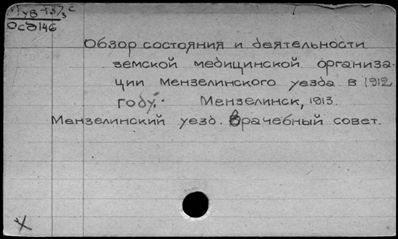 Осд146
Обзор состояния и деятельности
земской медицинской организа-
ции Мензелинского уезда в 1912
году. Мензелинск, 1913.
Мензелинский уезд. Врачебный совет.